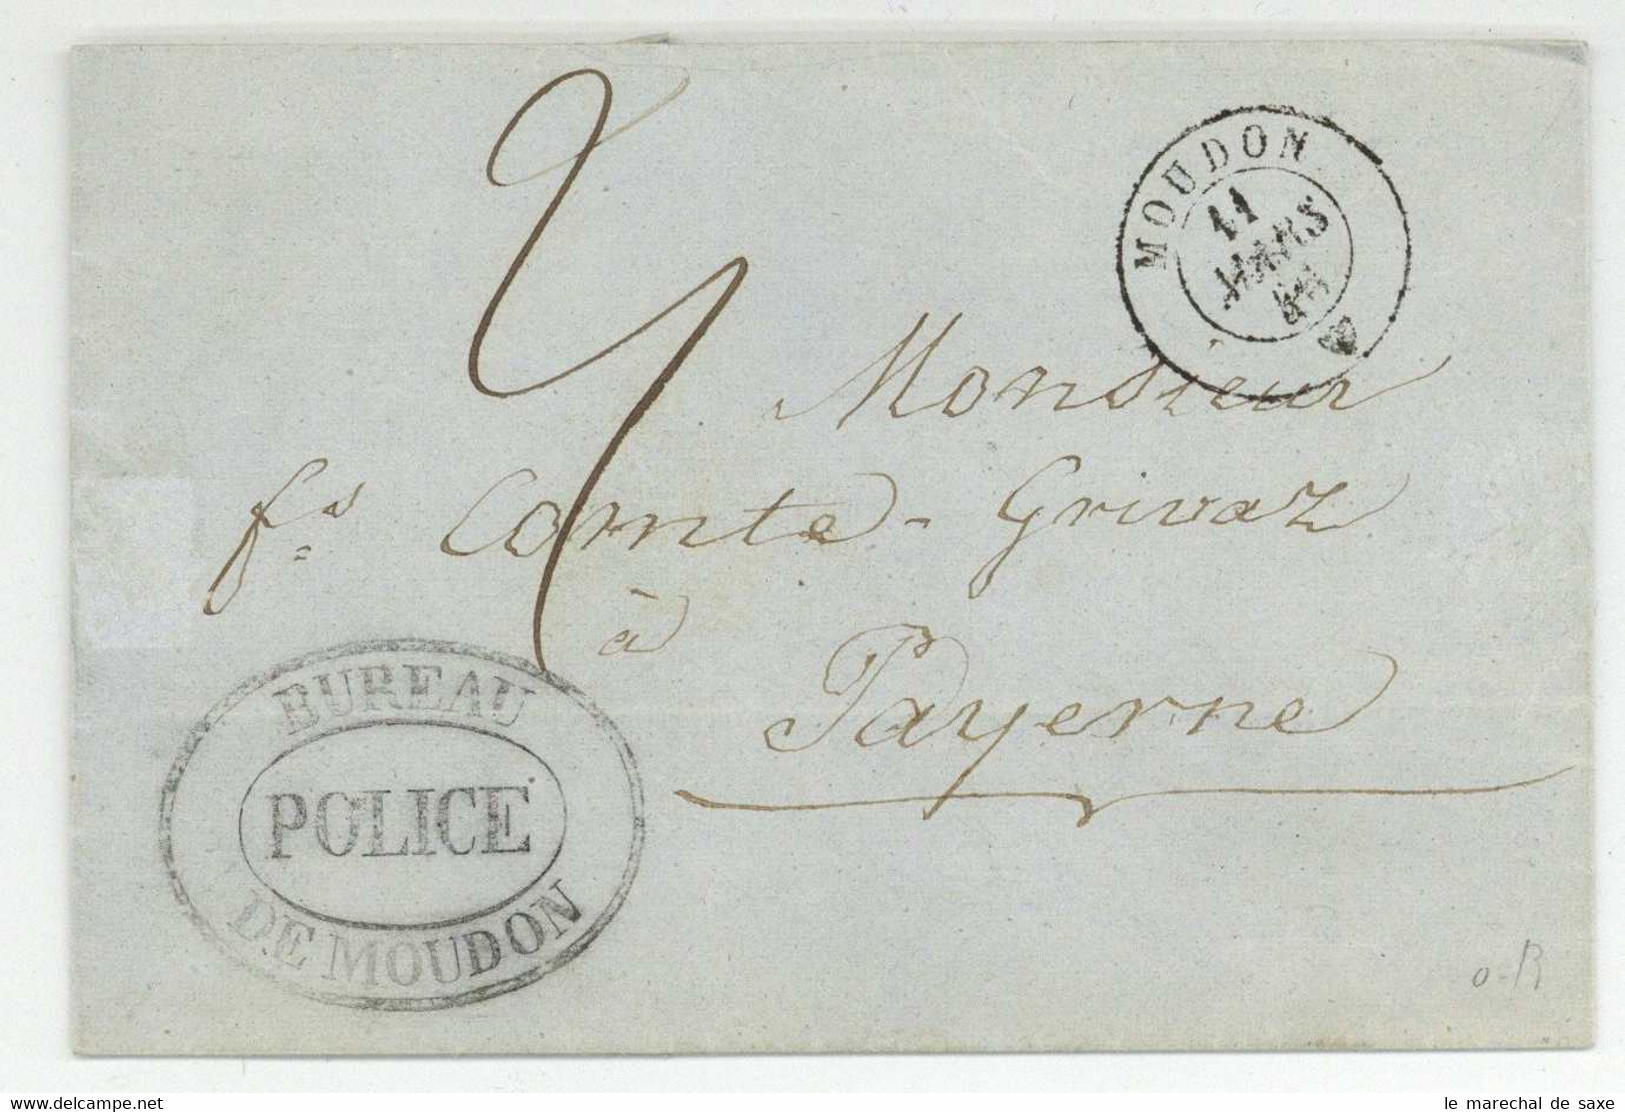 MOUDON
11
MARS
Monsieur
fs Comte-Grivaz
à
Payerne
BUREAU
POLICE
DE MOUDON
o-R
www.delcampe.net
le marechal de saxe